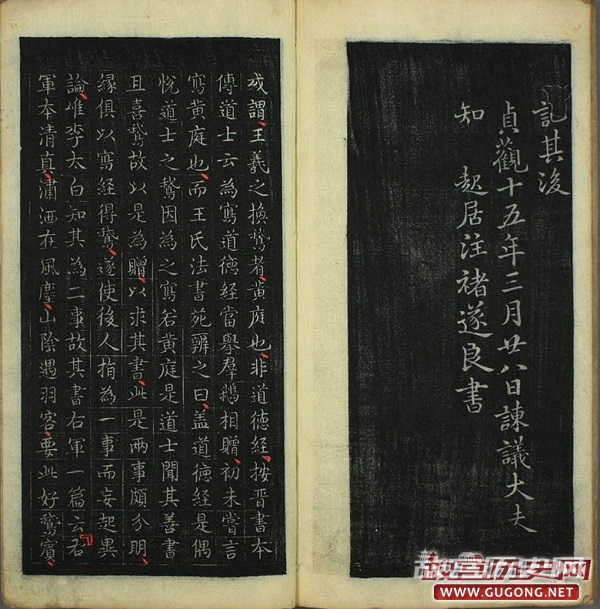 記其後
貞觀十五年三月廿八日諫議大夫
知 起居注褚遂良書
或謂王羲之換鵞者黄庭也非道德經按晋書本
傳道士云為寫道德經當舉羣鵝相贈初未嘗言
寫黄庭也而王氏法書苑辨之曰盖道德經是偶
悅道士之鵞因為之寫若黄庭是道士聞其善書
且喜鵞故以是為贈以求其書此是兩事頗分明
緣俱以寫經得鵞遂使後人指為一事而妄起異
論唯李太白知其為二事故其書右軍一篇云右
軍本清真瀟洒在風塵山陰遇羽客要此好鵞賓
故宫历史网
WWW.GUGONG.NET